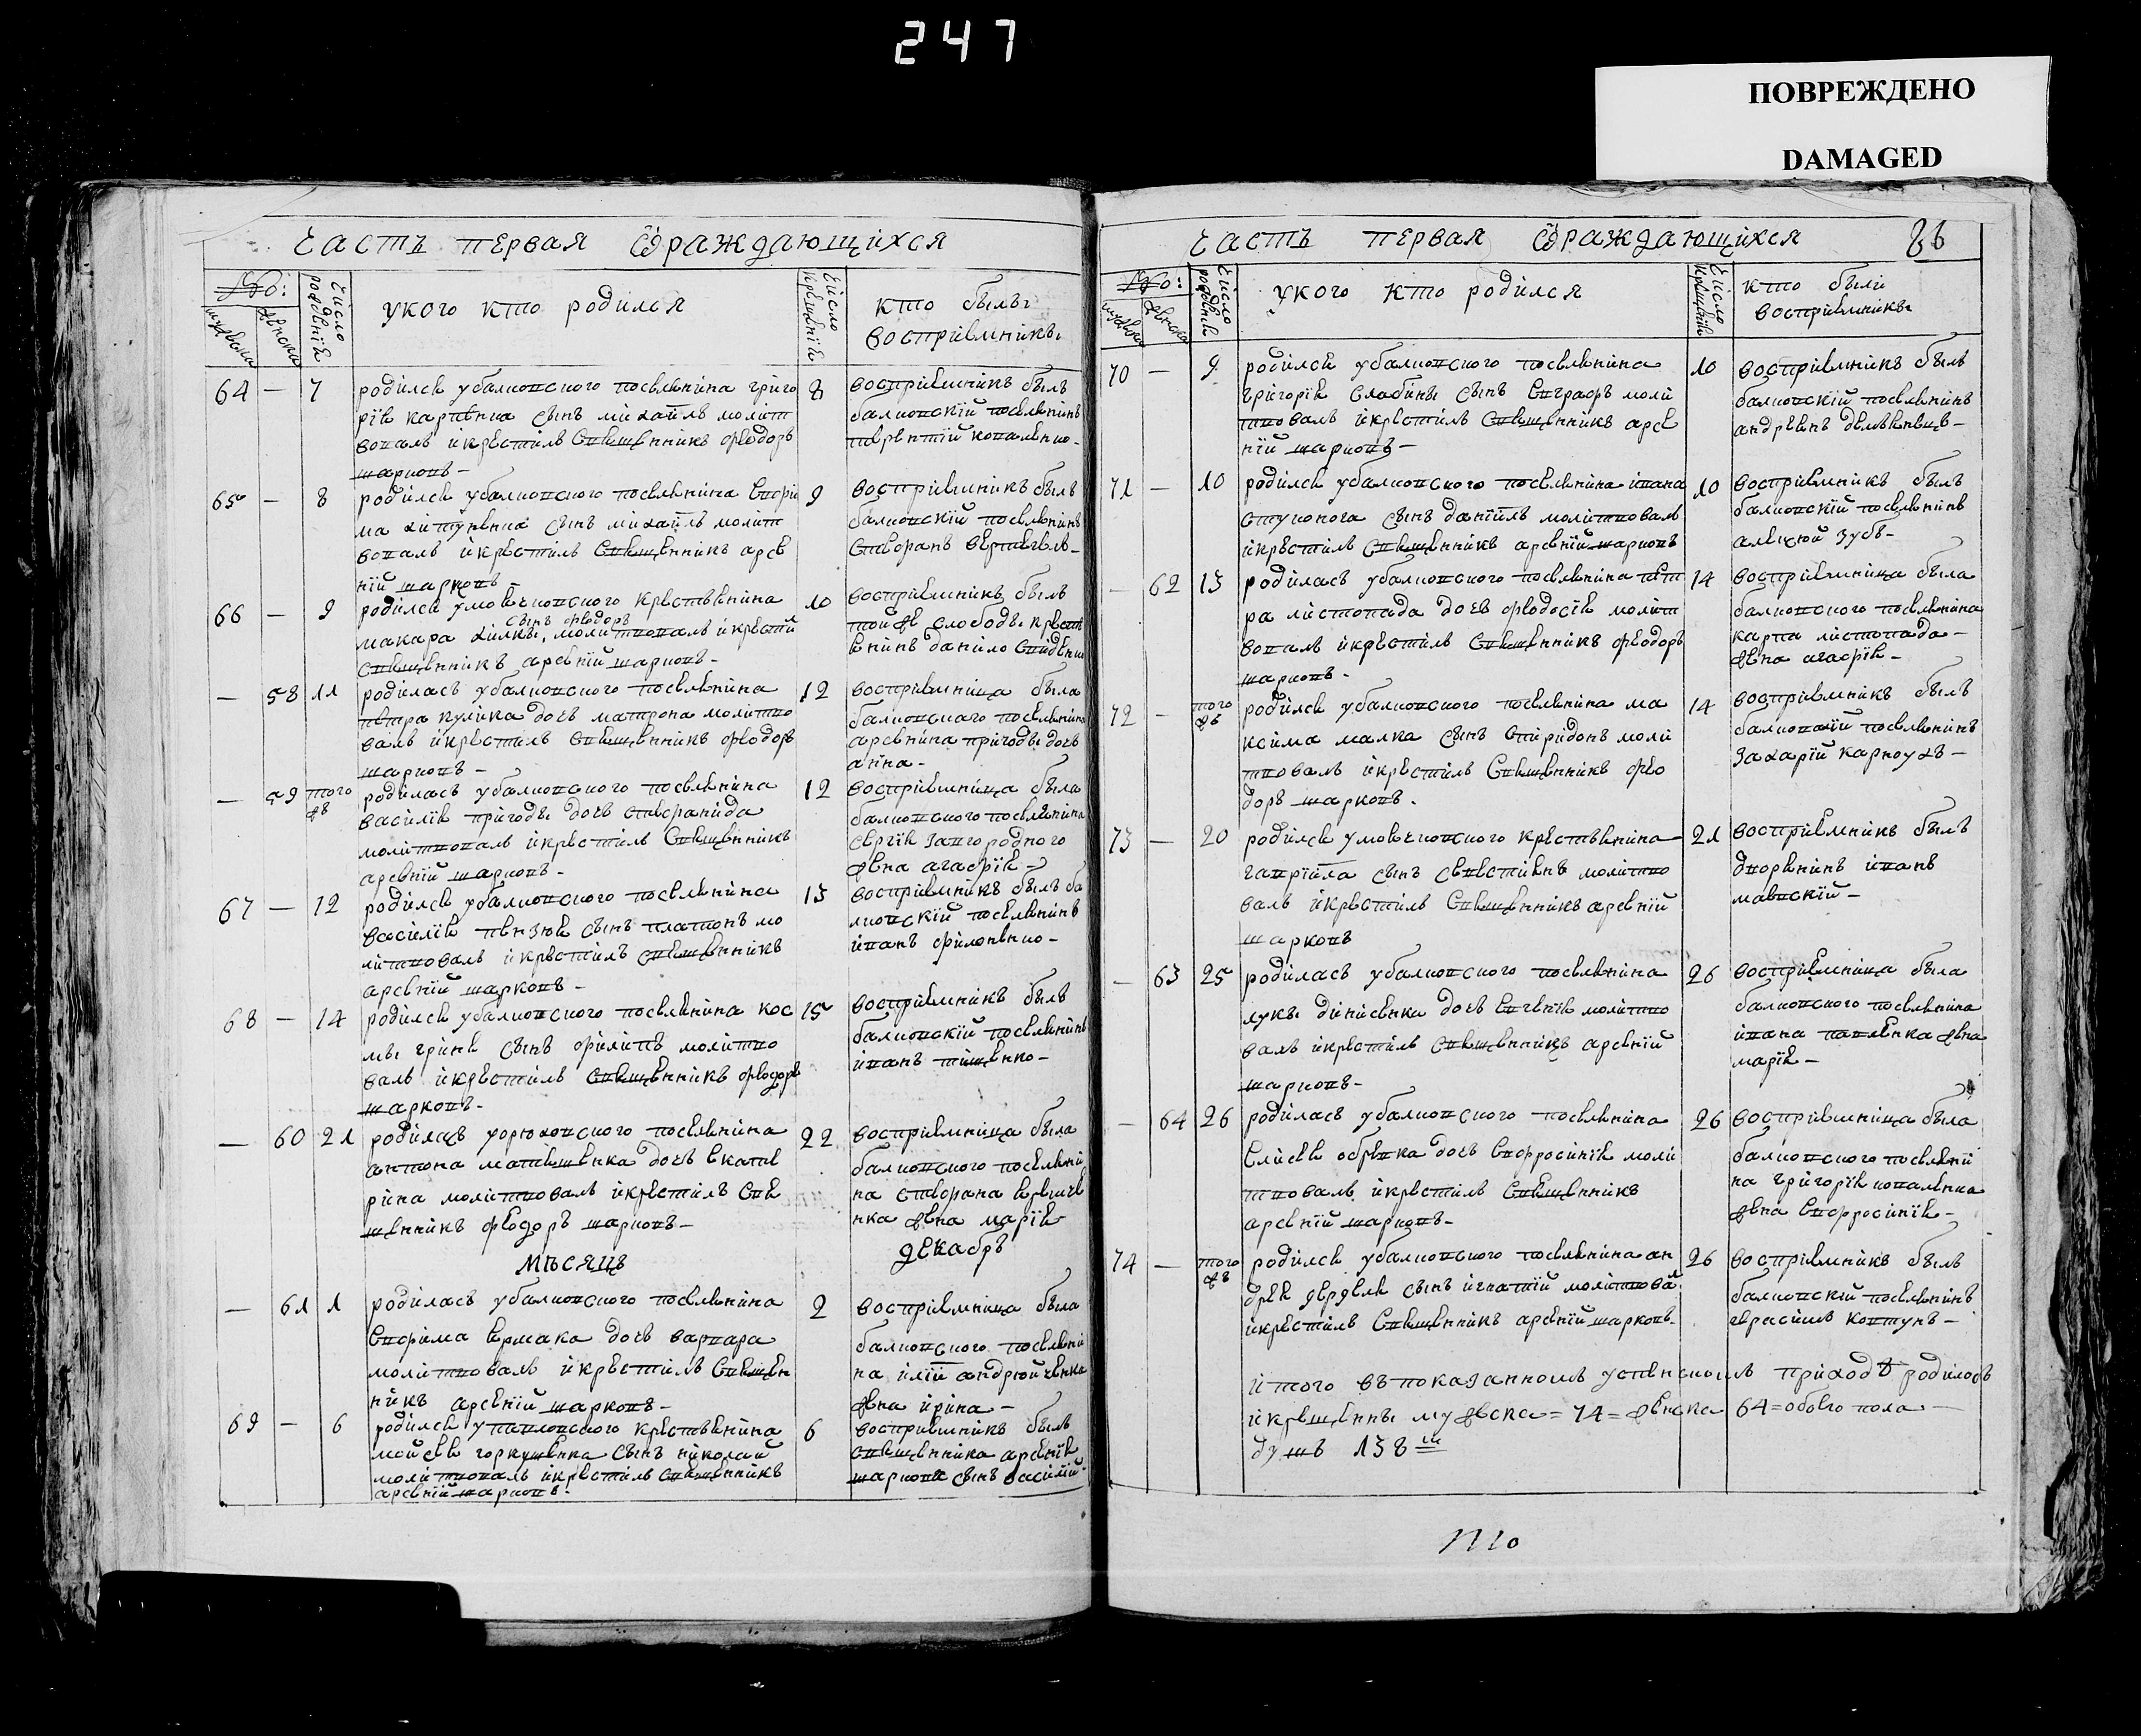 247
ПОВРЕЖДЕНО
DAMAGED
Часть первая о раждающихся
№: мужеска женска
Число рожденій
у кого кто родился
Число крещеній
кто были
воспріемники
64 — 7 родился у балковского поселянина григо
рія сынъ михаилъ молит
вовалъ и крестилъ священникъ феодоръ
шарковъ —
8 воспріемникъ былъ
балковскій поселянинъ
терентій коваленко —
65 — 8 родился у балковского поселянина евфи
ма сынъ михаилъ молит
вовалъ и крестилъ священникъ арсе
ній шарковъ —
9 воспріемникъ былъ
балковскій поселянинъ
стефанъ
66 — 9 родился у крестьянина
сынъ феодоръ
макара хилки, молитвовалъ и крести
священникъ арсеній шарковъ —
10 воспріемникъ былъ
той же слободы кресть
янинъ данило
— 58 11 родилась у балковского поселянина
петра кулика дочь матрона молитво
валъ и крестилъ священникъ феодоръ
шарковъ —
12 воспріемница была
балковского поселянина
арсенија пригоды дочь
анна —
— 59 того же родилась у балковского поселянина
василія пригоды дочь стефанида
молитвовалъ и крестилъ священникъ
арсеній шарковъ —
12 воспріемница была
балковского поселянина
сергія загороднего
жена агафія —
67 — 12 родился у балковского поселянина
василія сынъ платонъ мо
литвовалъ и крестилъ священникъ
арсеній шарковъ —
13 воспріемникъ былъ ба
лковскій поселянинъ
иванъ филоненко —
68 — 14 родился у балковского поселянина кос
мы грини сынъ филипъ молитво
валъ и крестилъ священникъ феодоръ
шарковъ —
15 воспріемникъ былъ
балковскій поселянинъ
иванъ тищенко —
— 60 21 родилась у поселянина
антона дочь екате
рина молитвовалъ и крестилъ свя
щенникъ феодоръ шарковъ —
22 воспріемница была
балковского поселяни
на стефана
жена марія —
мѣсяцъ декабрь
— 61 1 родилась у балковского поселянина
евфима ермака дочь варвара
молитвовалъ и крестилъ священ
никъ арсеній шарковъ —
2 воспріемница была
балковского поселяни
на иліи андрюйченка
жена ирина —
69 — 6 родился у павловского крестьянина
мойсея горкушенка сынъ николай
молитвовалъ и крестилъ священникъ
арсеній шарковъ.
6 воспріемникъ былъ
священника арсенія
шаркова сынъ василій
Часть первая о раждающихся 86
№: мужеска женска
Число рожденій
у кого кто родился
Число крещеній
кто были
воспріемники
70 — 9 родился у балковского поселянина
григорія слабины сынъ евграфъ моли
твовалъ и крестилъ священникъ арсе
ній шарковъ —
10 воспріемникъ былъ
балковскій поселянинъ
андреянъ
71 — 10 родился у балковского поселянина ивана
сынъ даніилъ молитвовалъ
и крестилъ священникъ арсеній шарковъ
10 воспріемникъ былъ
балковскій поселянинъ
алексій зубъ —
— 62 13 родилась у балковского поселянина пет
ра листопада дочь феодосія молит
вовалъ и крестилъ священникъ феодоръ
шарковъ —
14 воспріемница была
балковского поселянина
карпа листопада —
жена агафія —
72 — того же родился у балковского поселянина ма
ксима малка сынъ спиридонъ моли
твовалъ и крестилъ священникъ фео
доръ шарковъ.
14 воспріемникъ былъ
балковскій поселянинъ
захарій карноухъ —
73 — 20 родился у крестьянина
гавріила сынъ севастіянъ молитво
валъ и крестилъ священникъ арсеній
шарковъ
21 воспріемникъ былъ
дворянинъ иванъ
маевскій —
— 63 25 родилась у балковского поселянина
луки динисенка дочь евгенія молитво
валъ и крестилъ священникъ арсеній
шарковъ —
26 воспріемница была
балковского поселянина
ивана павленка жена
марія —
— 64 26 родилась у балковского поселянина
елисея дочь евфросинія моли
твовалъ и крестилъ священникъ
арсеній шарковъ —
26 воспріемница была
балковского поселяни
на григорія коваленка
жена евфросинія —
74 — того же родился у балковского поселянина ан
дрея деркача сынъ игнатій молитвова
и крестилъ священникъ арсеній шарковъ.
26 воспріемникъ былъ
балковскій поселянинъ
герасимъ ковтунъ —
Итого въ показанномъ успенскомъ приходѣ родилось
и крещены мужеска = 74 = женска 64 = обоего пола —
душъ 138